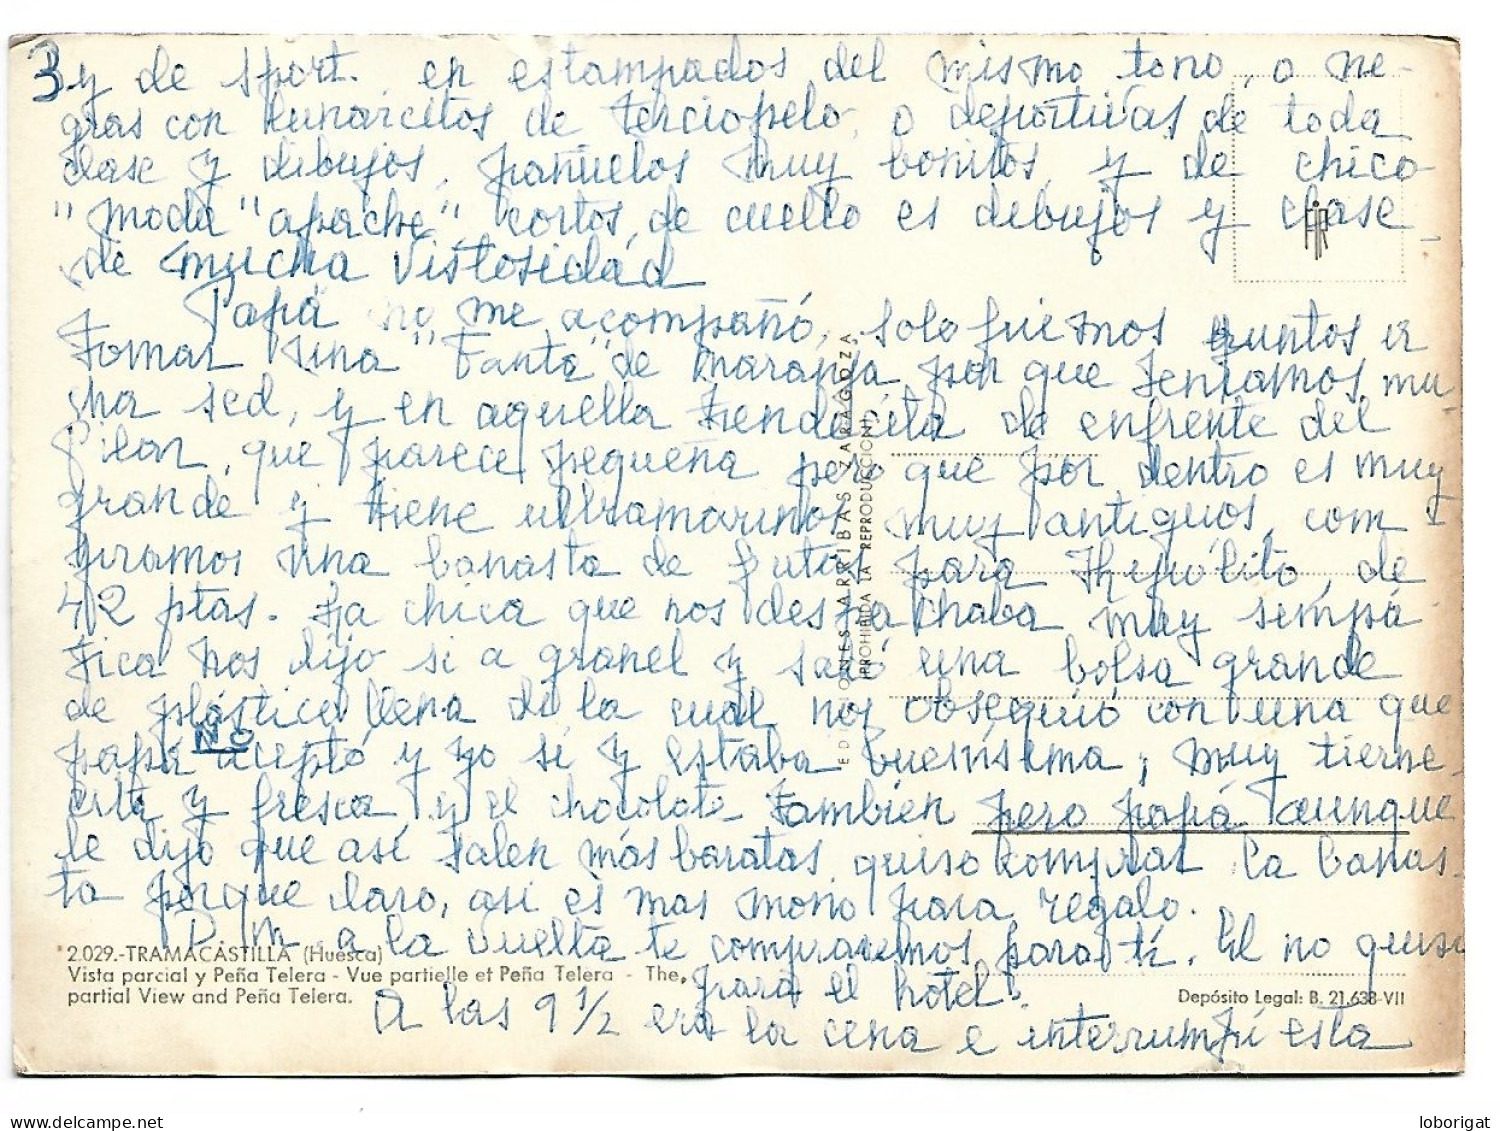 3
y de sport. en estampados del mismo tono, o ne-
gras con lunarcitos de terciopelo, o deportivas de toda
clase y dibujos, pañuelos muy bonitos, y de chico
"moda "apache", cortos, de cuello es dibujos y clase
de mucha vistosidad
Papá no me acompañó, solo fuimos juntos a
tomar una "Fanta" de naranja por que teniamos mu-
cha sed, y en aquella tiendecita de enfrente del
Pilar, que parece pequeña pero que por dentro es muy
grande y tiene ultramarinos muy antiguos, com
pramos una banasta de frutas para Hipólito, de
42 ptas. La chica que nos despachaba muy simpá
tica nos dijo si a granel y sacó una bolsa grande
de plástico llena de la cual nos obsequió con una que
papá NO aceptó y yo si y estaba buenísima; muy tierne-
cita y fresca y el chocolate tambien pero papá aunque
le dijo que asi salen más baratas quiso comprar la banas-
ta porque claro, asi es mas mono para regalo.
D. m. a la vuelta te compraremos para ti. El no quiso
para el hotel.
A las 9 1/2 era la cena e interrumpí esta
2.029.-TRAMACASTILLA (Huesca)
Vista parcial y Peña Telera - Vue partielle et Peña Telera - The,
partial View and Peña Telera.
Depósito Legal: B. 21.638-VII
EDICIONES ARRIBAS ZARAGOZA
(PROHIBIDA LA REPRODUCCION)
loborigat